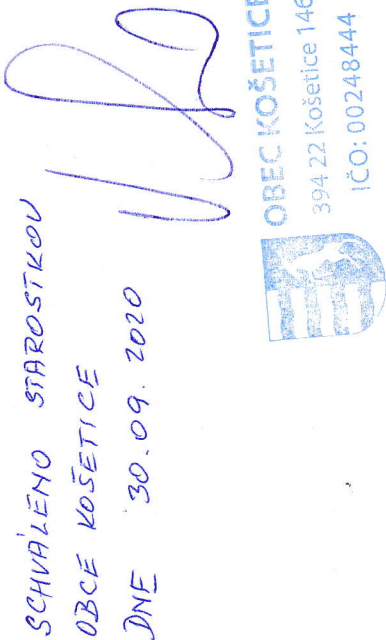 SCHVÁLENO STAROSTKOU
OBCE KOŠETICE
DNE 30.09. 2020
OBEC KOŠETICE
394 22 Košetice 146
IČO: 00248444